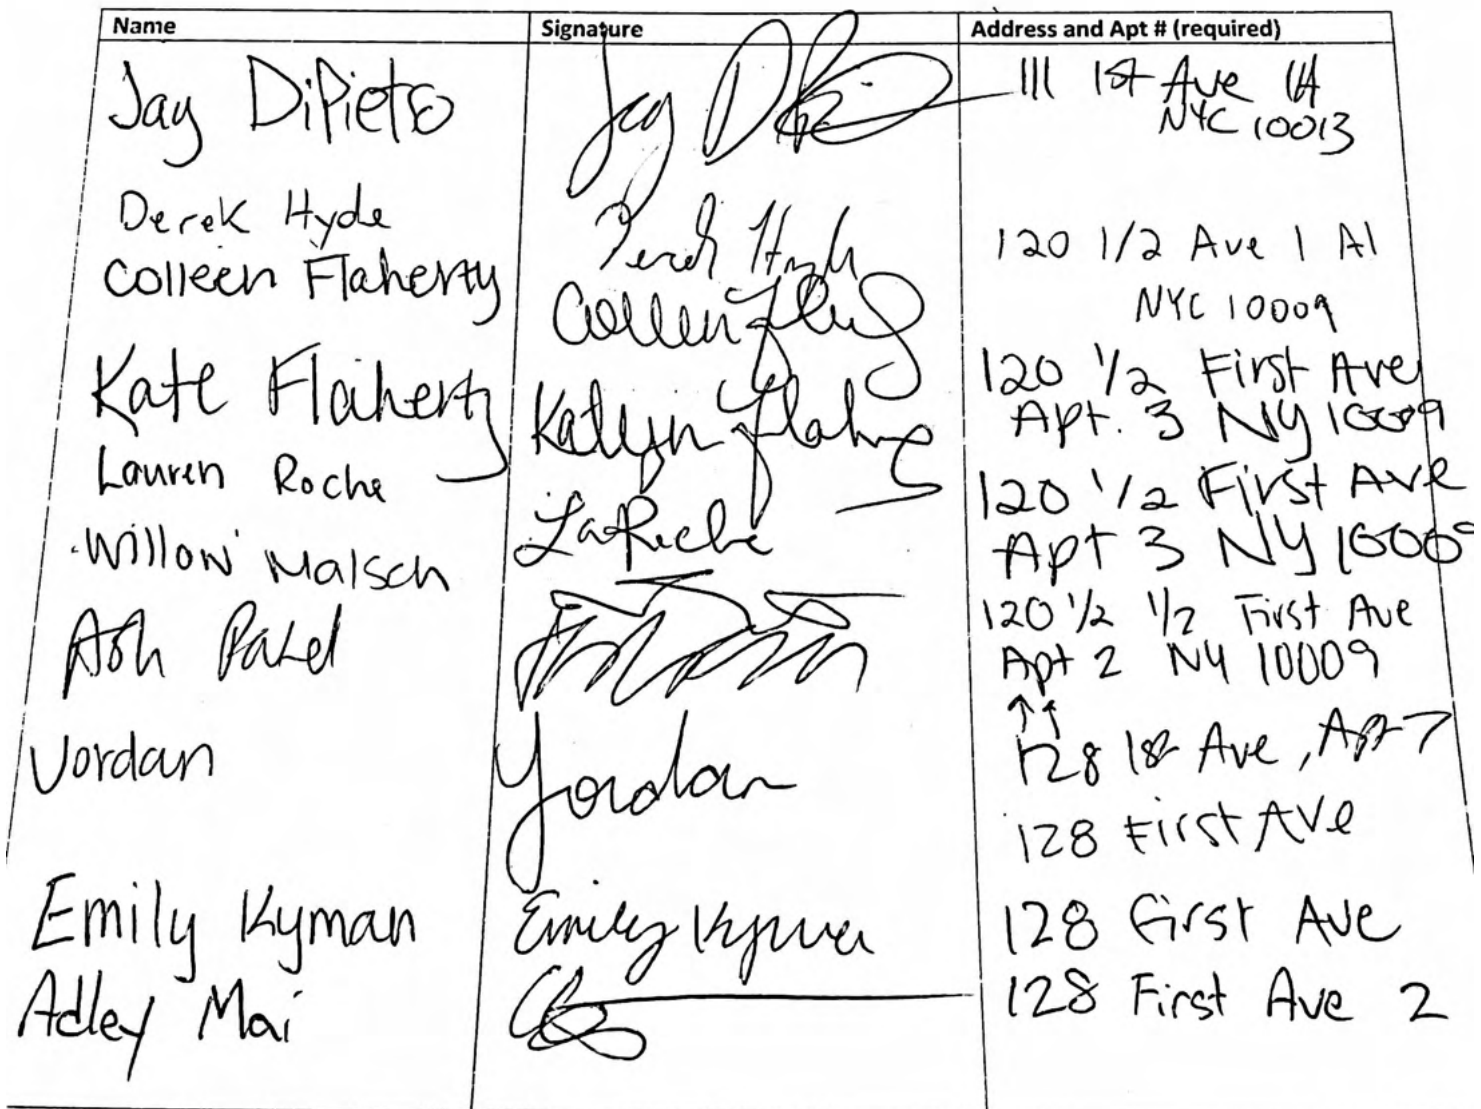 Name Signature Address and Apt # (required)
Jay DiPietro Jay 111 1st Ave 1A
NYC 10013
Derek Hyde Derek
120 1/2 Ave 1 A1
Colleen Flaherty Colleen
NYC 10009
Kate Flaherty Katlyn 120 1/2 First Ave
Apt. 3 NY 10009
Lauren Roche LaRoche 120 1/2 First Ave
Apt 3 NY 10009
Willow Malsch
120 1/2 1/2 First Ave
Ash Patel
Apt 2 NY 10009
Jordan Jordan 128 1st Ave, Apt 7
128 First Ave
Emily Kyman Emily Kyman 128 First Ave
Adley Mai 128 First Ave 2